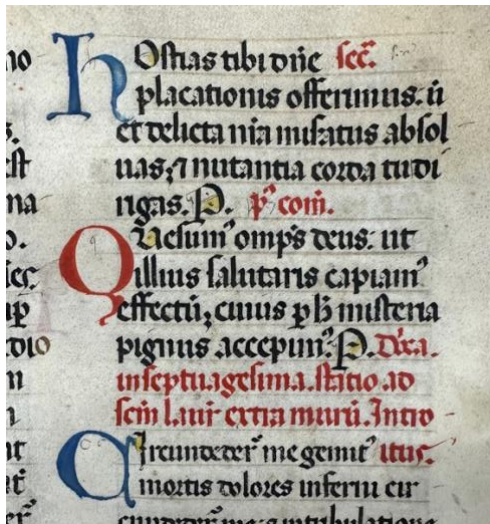 hOstias tibi dñe sec̃.
placationis offerimus. ũ
et delicta nr̃a misatus absol
uas, ⁊ nutantia corda tu di
rigas. P. p̃ com̃.
Quesum᷒ omp̃s deus: ut
illius salutaris capiam᷒
effectũ, cuius ꝑ h̃ misteria
pignus accepim᷒. P. Dñica.
in septuagesima. statio ad
sc̃m laur̃ extra murũ. Intro
Circundeder̃ me gemit᷒ itus.
mortis dolores inferni cir